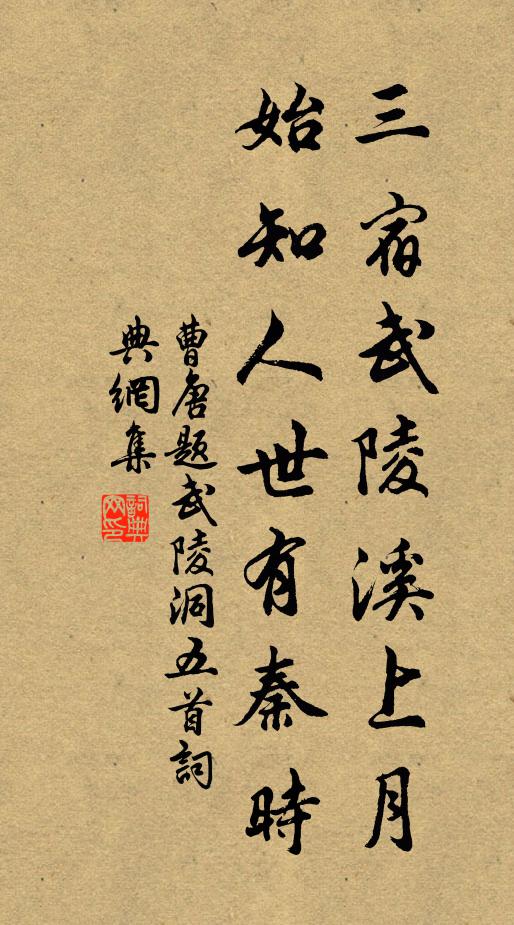 三宿武陵溪上月
始知人世有秦時
曹唐題武陵洞五首詞
典網集
詞典
網印